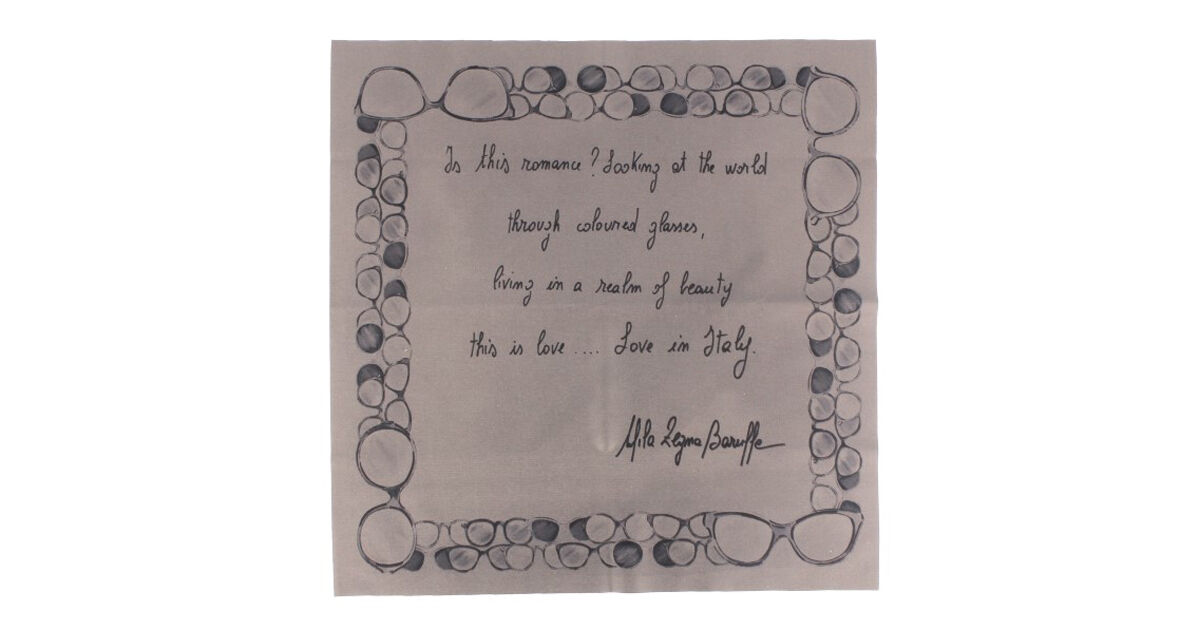 Is this romance? Looking at the world
through coloured glasses,
living in a realm of beauty
this is love .... Love in Italy.
Mila Zegna Baruffa